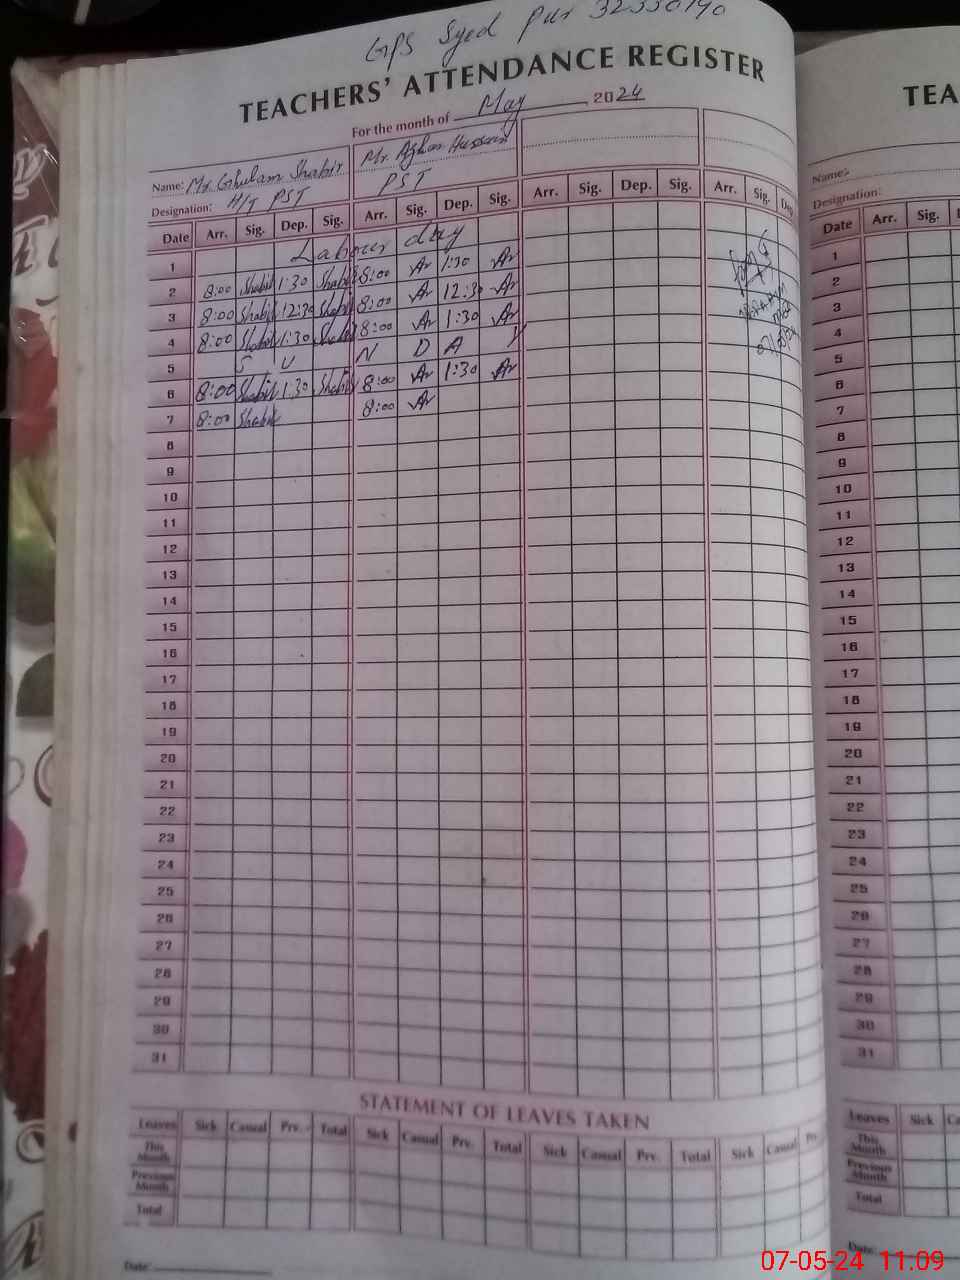 GPS Syed pur 32330190
TEACHERS' ATTENDANCE REGISTER
For the month of May 2024
Name: Mr. Ghulam Shabir Mr. Azhar Hussain
Designation: H/T PST PST
Date Arr. Sig. Dep. Sig. Arr. Sig. Dep. Sig. Arr. Sig. Dep. Sig. Arr. Sig. Dep
1 Labour day
2 8:00 Shabir 1:30 Shabir 8:00 Ar 1:30 Ar
3 8:00 Shabir 12:30 Shabir 8:00 Ar 12:30 Ar
4 8:00 Shabir 1:30 Shabir 8:00 Ar 1:30 Ar
5 S U N D A Y
6 8:00 Shabir 1:30 Shabir 8:00 Ar 1:30 Ar
7 8:00 Shabir 8:00 Ar
8
9
10
11
12
13
14
15
16
17
18
19
20
21
22
23
24
25
26
27
28
29
30
31
STATEMENT OF LEAVES TAKEN
Leaves Sick Casual Prv. Total Sick Casual Prv. Total Sick Casual Prv. Total Sick Casual Prv
This Month
Previous Month
Total
Date:
TEA
Name:
Designation:
Date Arr. Sig.
1
2
3
4
5
6
7
8
9
10
11
12
13
14
15
16
17
18
19
20
21
22
23
24
25
26
27
28
29
30
31
Leaves Sick Ca
This Month
Previous Month
Total
Date:
07-05-24 11:09